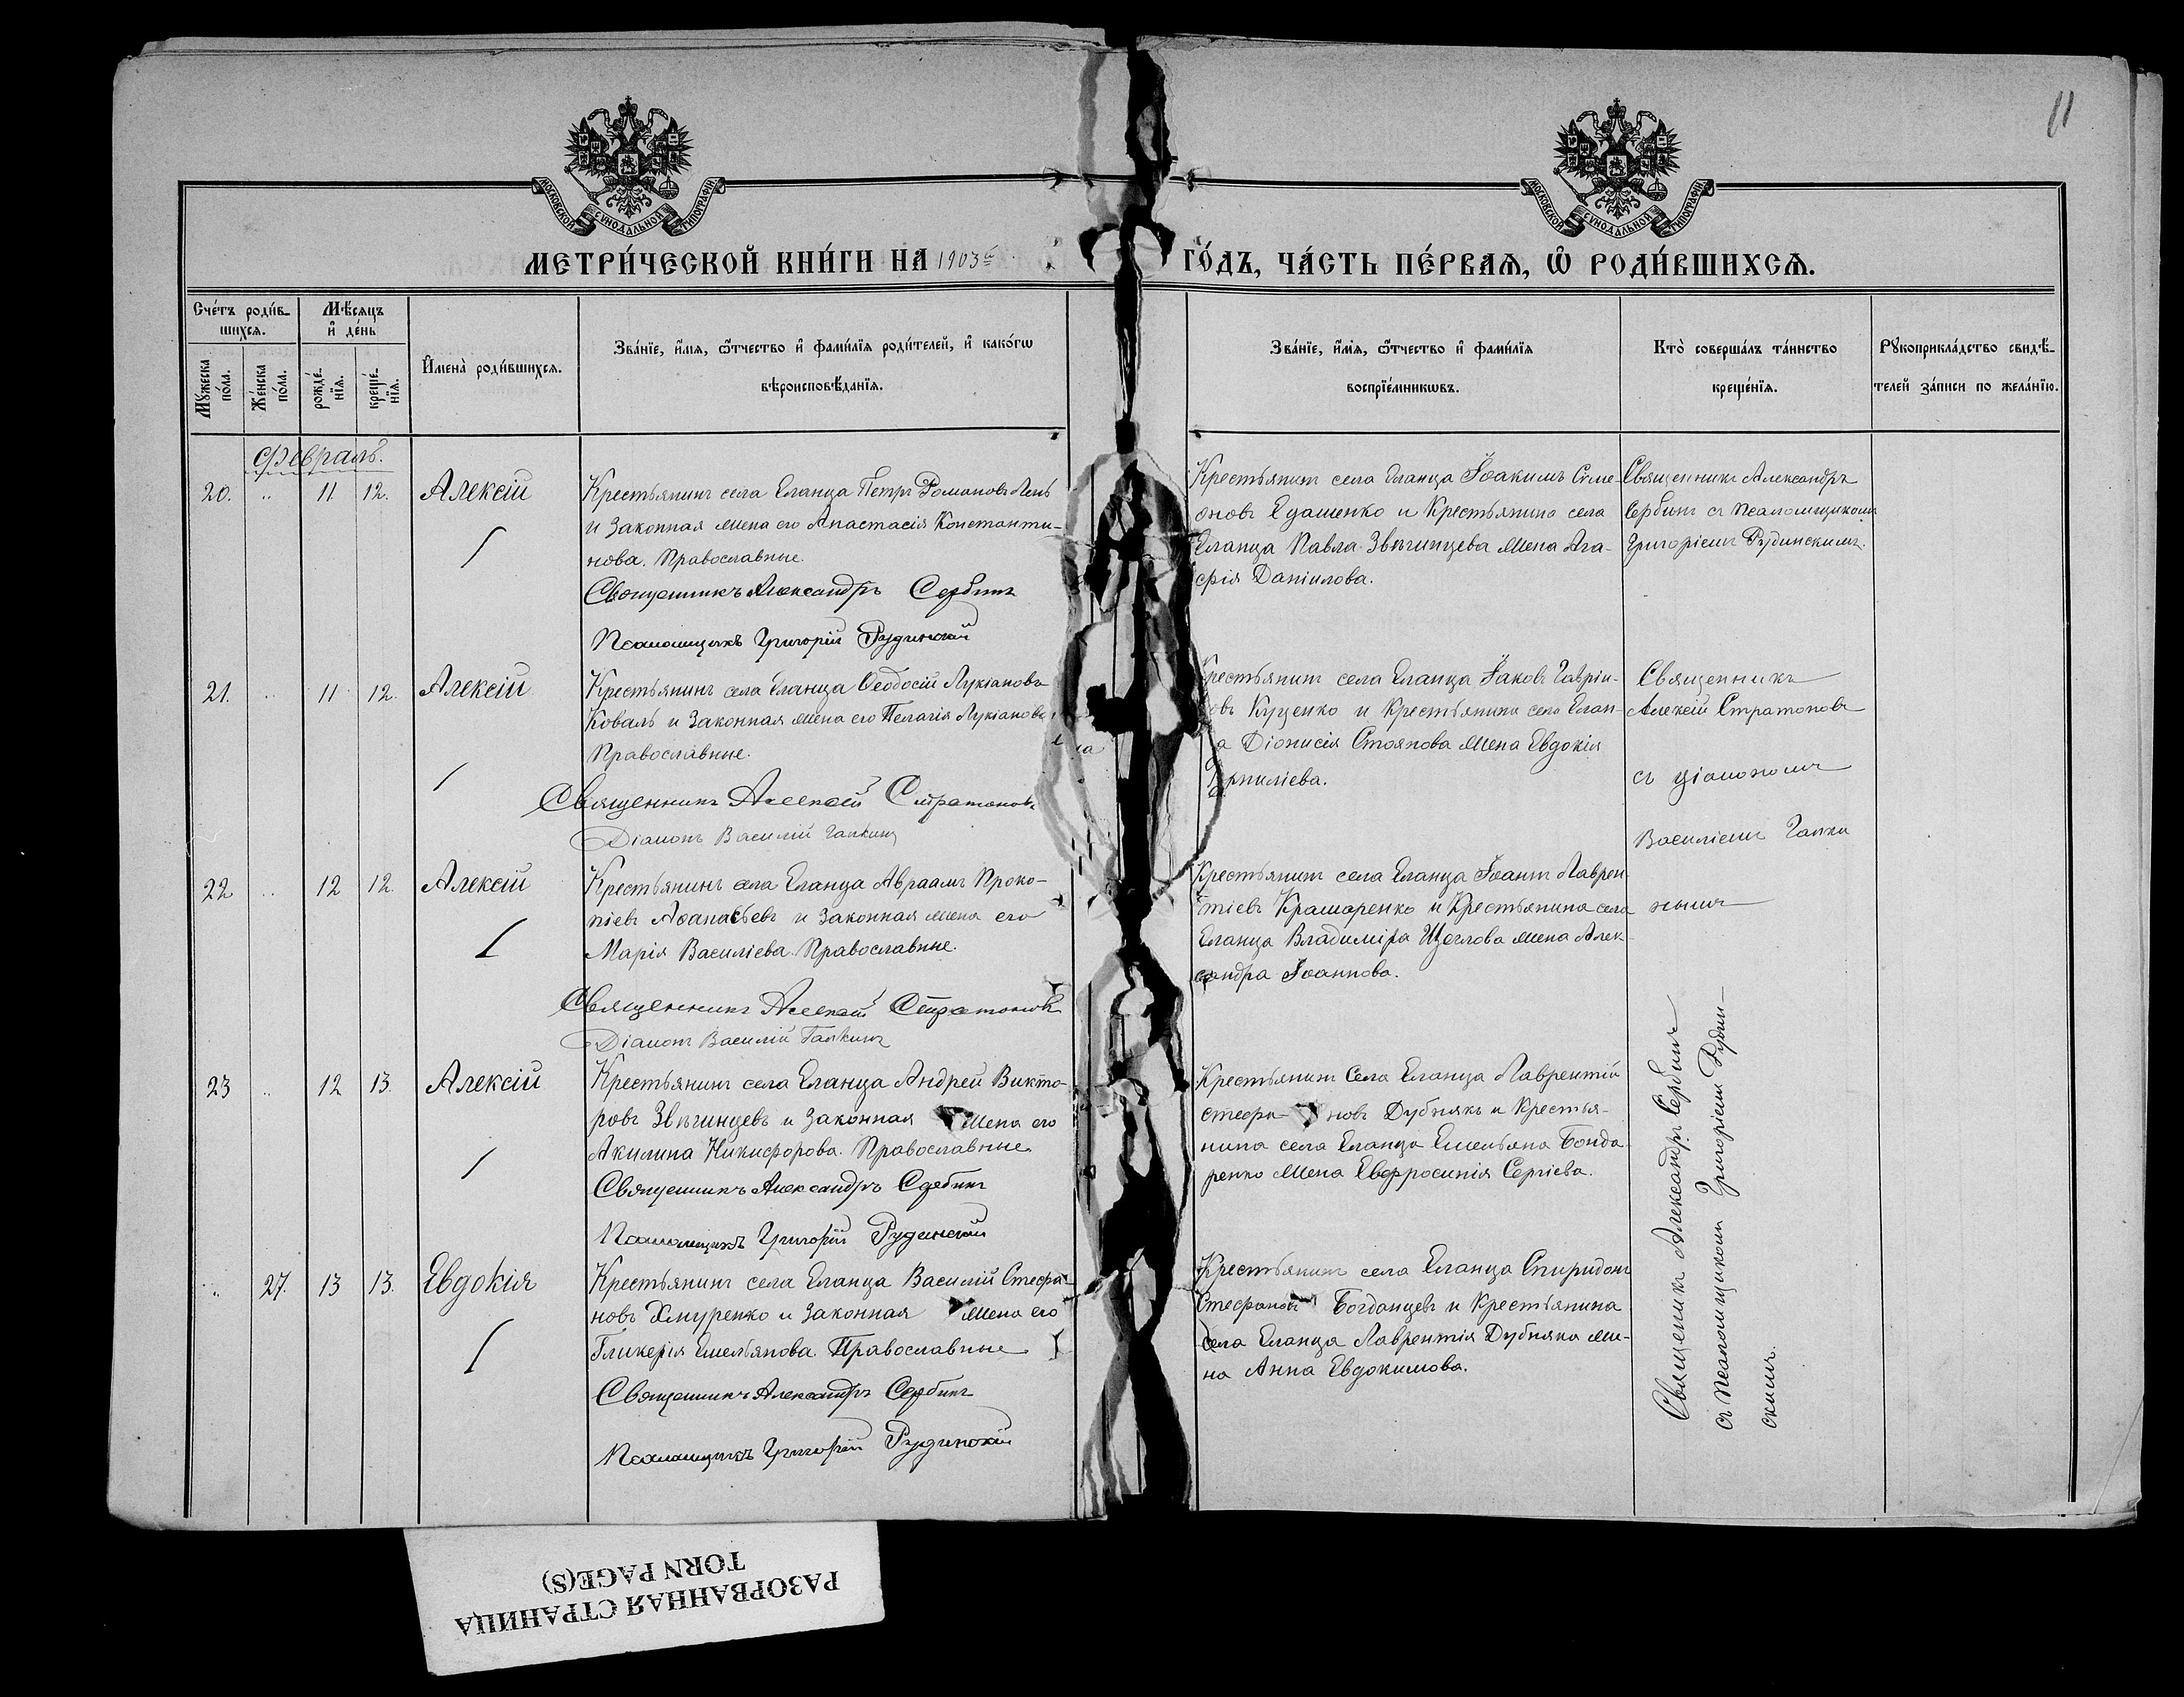 11
МОСКОВСКОЙ СУНОДАЛЬНОЙ ТИПОГРАФІИ
МОСКОВСКОЙ СУНОДАЛЬНОЙ ТИПОГРАФІИ
МЕТРИ́ЧЕСКОЙ КНИ́ГИ НА 1903й
ГО́ДЪ, ЧА́СТЬ ПЕ́РВАѦ, Ѡ҆ РОДИ́ВШИХСѦ.
Сче́тъ роди́в-
шихсѧ.
Мꙋ́жеска по́ла.
Же́нска по́ла.
Мѣ́сѧцъ
и҆ де́нь
рожде́-
нїѧ.
креще́-
нїѧ.
И҆мена̀ роди́вшихсѧ.
Зва́нїе, и҆́мѧ, ѻ҆́тчество и҆ фами́лїѧ роди́телей, и҆ како́гѡ
вѣроисповѣ́данїѧ.
Зва́нїе, и҆́мѧ, ѻ҆́тчество и҆ фами́лїѧ
воспрїе́мникѡвъ.
Кто̀ соверша́лъ та́инство
креще́нїѧ.
Рꙋкоприкла́дство свидѣ́-
телей за́писи по жела́нїю.
Февраль.
20. " 11 12. Алексій
Крестьянинъ села Еланца Петръ Романовъ Лень
и законная жена его Анастасія Константи-
нова. Православные.
Священникъ Александръ Сербинъ
Псаломщикъ Григорій Рудинскій
Крестьянинъ села Еланца Іоакимъ Симе-
оновъ Едашенко и Крестьянина села
Еланца Павла Звѣгинцева жена Ага-
фія Даніилова.
Священникъ Александръ
Сербинъ съ псаломщикомъ
Григоріемъ Рудинскимъ.
21. " 11 12. Алексій
Крестьянинъ села Еланца Ѳеодосій Лукіановъ
Коваль и законная жена его Пелагія Лукіанова,
Православные.
Священникъ Алексей Стратоновъ
Діаконъ Василій Галкинъ
Крестьянинъ села Еланца Іаковъ Гаврiи-
овъ Куценко и Крестьянина села Елан-
а Діонисія Стоянова жена Евдокія
Корниліева.
Священникъ
Алексій Стратоновъ
съ діакономъ
Василіемъ Галки
нымъ
22 " 12 12. Алексій
Крестьянинъ села Еланца Авраамъ Проко-
піевъ Аѳанасьевъ и законная жена его
Марія Василіева. Православные.
Священникъ Алексей Стратоновъ
Діаконъ Василій Галкинъ
Крестьянинъ села Еланца Іоаннъ Лаврен
тіевъ Крамаренко и Крестьянина села
Еланца Владиміра Щеглова жена Алек
сандра Іоаннова.
23 " 12 13. Алексій
Крестьянинъ села Еланца Андрей Викто-
ровъ Звѣгинцевъ и законная жена его
Акилина Никифорова. Православные
Священникъ Александръ Сербинъ
Псаломщикъ Григорій Рудинскій
Крестьянинъ села Еланца Лаврентій
Стефа- новъ Дубнякъ и Крестья-
нина села Еланца Емельяна Бонда-
ренко жена Евфросинія Сергіева.
" 27. 13 13. Евдокія
Крестьянинъ села Еланца Василій Стефа-
новъ Хмуренко и законная жена его
Гликерія Емельянова. Православные
Священникъ Александръ Сербинъ
Псаломщикъ Григорій Рудинскій
Крестьянинъ села Еланца Спиридонъ
Стефановъ Богданцевъ и Крестьянина
села Еланца Лаврентія Дубняка же-
на Анна Евдокимова.
Священникъ Александръ Сербинъ
съ псаломщикомъ Григоріемъ Рудин-
скимъ.
РАЗОРВАННАЯ СТРАНИЦА
TORN PAGE(S)